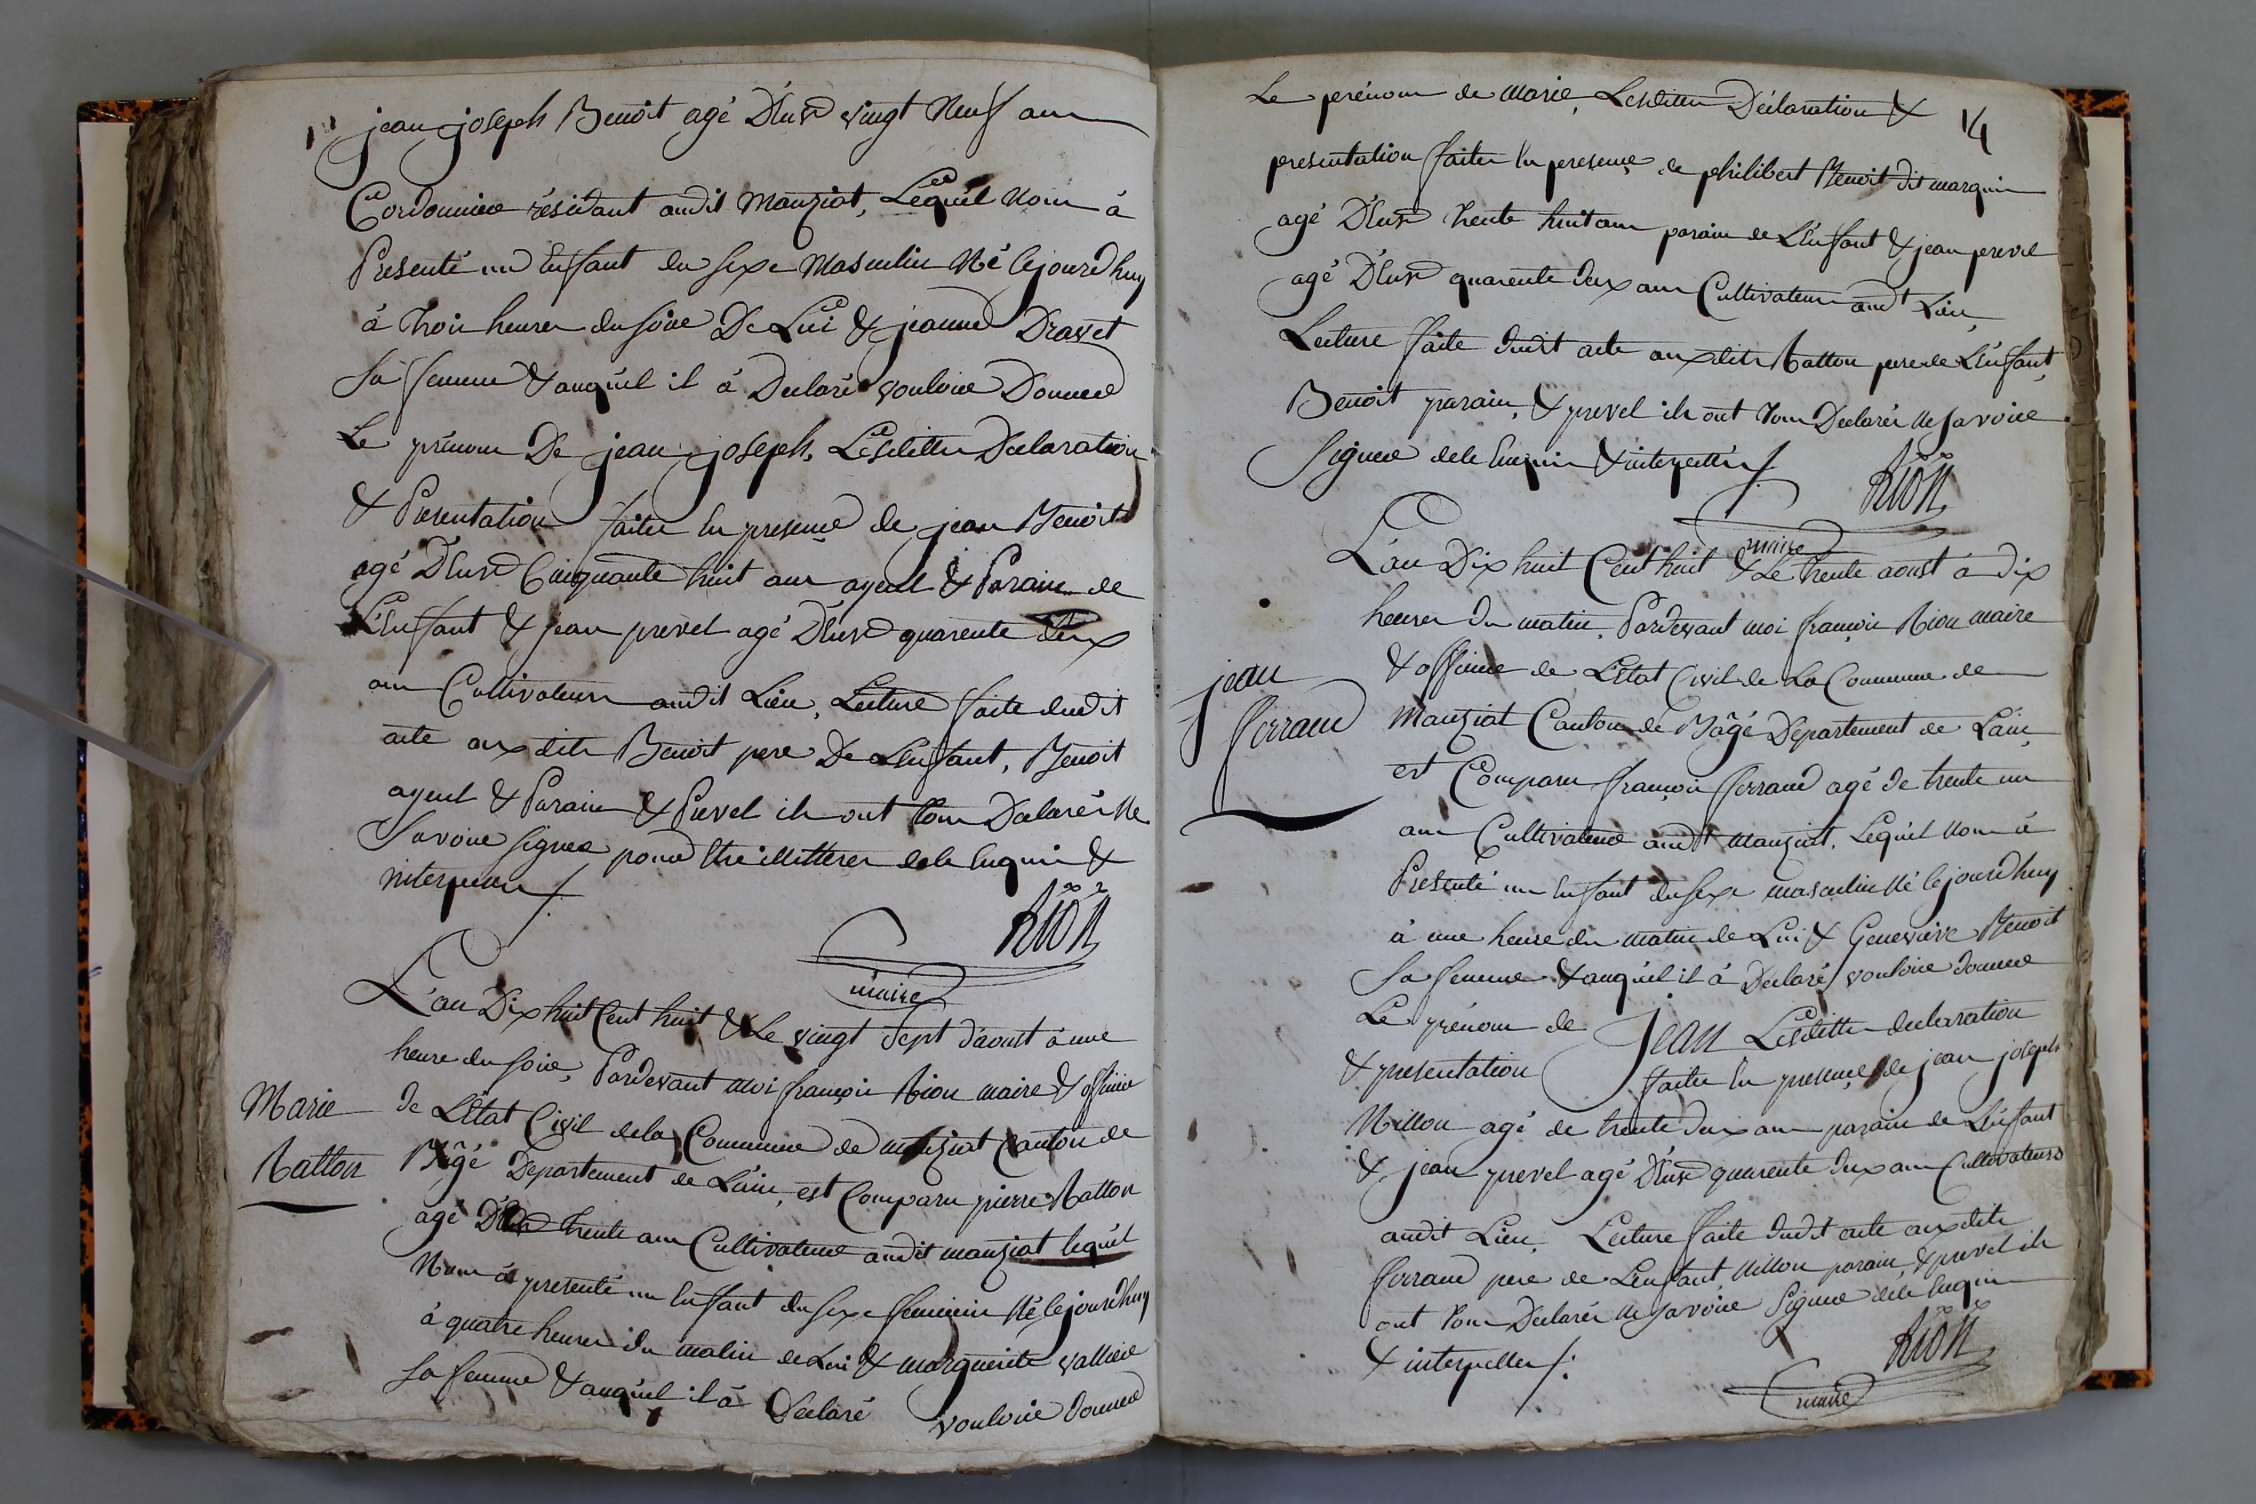 jean joseph Benoit agé D'Env. vingt Neuf ans
Cordonnier résidant audit Manziat, Lequel Nous à
Presenté un Enfant du sexe Masculin Né cejourd'huy
à trois heures du soir De Lui & jeanne Dravet
Sa femme & auquel il à Declaré vouloir Donner
Le prénom De jean joseph, Lesdittes Declaration
& Presentation faites En presence de jean Benoit
agé D'Env. Cinquante huit ans ayeul & Parain de
L'Enfant & jean prevel agé D'Env. quarente deux
ans Cultivateurs audit Lieu, Lecture faite dudit
acte aux dits Benoit pere De L'Enfant, Benoit
ayeul & Parain & Prevel ils ont tous Declarés Ne
Savoir signer pour Etre illitterer de le Enquis &
interpeller ./.
Rion
maire
L'an Dix huit Cent huit & Le vingt sept d'aoust à une
heure du soir, Pardevant moi françois Rion maire & officier
Marie
Ratton
de L'Etat Civil de la Commune de manziat Canton de
Bâgé Departement de L'ain, est Comparu pierre Ratton
agé D'Env. trente ans Cultivateur audit manziat lequel
Nous à presenté un Enfant du sexe feminin Né cejourd'huy
à quatre heures du matin de Lui & marguerite vallier
Sa femme & auquel il à Declaré vouloir donner
14
Le prénom de Marie, Lesdittes Déclaration &
presentation faites En presence de philibert Benoit dit marquis
agé D'Env. trente huit ans parain de L'Enfant & jean prevel
agé D'Env. quarente deux ans Cultivateurs audt Lieu,
Lecture faite dudit acte aux dits Ratton pere de L'Enfant,
Benoit parain, & prevel ils ont tous Declarés Ne savoir
Signer de le Enquis & interpellés ./.
Rion
maire
L'an Dix huit Cent huit & Le trente aoust à dix
heures du matin, Pardevant moi françois Rion maire
jean
ferrand
& officier de L'Etat Civil de La Commune de
Manziat Canton de Bâgé Departement de L'ain,
est Comparu françois ferrand agé de trente un
ans Cultivateur audt Manziat, Lequel Nous à
Presenté un Enfant du sexe masculin Né cejourd'huy
à une heure du matin de Lui & Geneviève Benoit
Sa femme & auquel il à Declaré vouloir donner
Le prénom de Jean Lesdittes declaration
& presentation faites En presence de jean joseph
Nillon agé de trente deux ans parain de L'Enfant
& jean prevel agé D'Env. quarente deux ans Cultivateurs
audit Lieu, Lecture faite dudit acte aux dits
ferrand pere de L'enfant, Nillon parain, & prevel ils
ont tous Declarés Ne savoir Signer de le Enquis
& interpeller ./.
Rion
maire